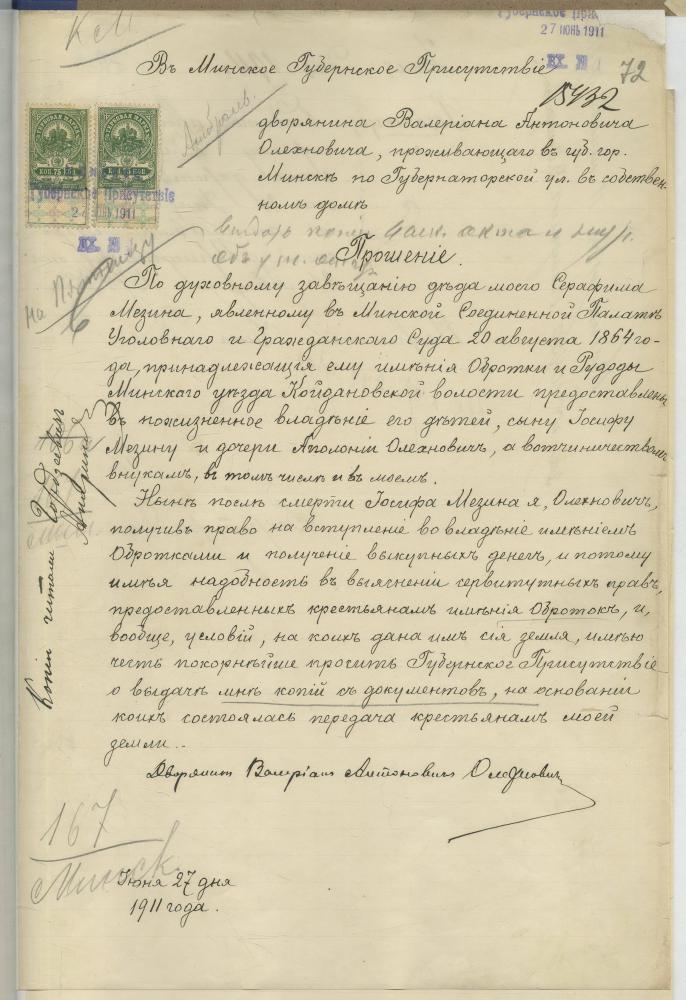 27 ІЮНЬ 1911
72
Въ Минское Губернское Присутствіе
15432
дворянина Валеріана Антоновича
Олехновича, проживающаго въ губ. гор.
Минскѣ по Губернаторской ул. въ собствен-
номъ домѣ
КОП 75
Губернское Присутствіе
2 ІЮНЬ 1911
выдать копіи
Прошеніе.
По духовному завѣщанію дѣда моего Серафима
Мезина, явленному въ Минской Соединенной Палатѣ
Уголовнаго и Гражданскаго Суда 20 августа 1864 го-
да, принадлежащія ему имѣнія Обротки и Рудоды
Минскаго уѣзда Койдановской волости предоставлены
въ пожизненное владѣніе его дѣтей, сыну Іосифу
Мезину и дочери Аполоніи Олехновичъ, а вотчиничествомъ
внукамъ, въ томъ числѣ и въ моемъ.
Нынѣ послѣ смерти Іосифа Мезина я, Олехновичъ,
получивъ право на вступленіе во владѣніе имѣніемъ
Обротками и полученіе выкупныхъ денегъ, и потому
имѣя надобность въ выясненіи сервитутныхъ правъ,
предоставленныхъ крестьянамъ имѣнія Обротокъ, и,
вообще, условій, на коихъ дана имъ сія земля, имѣю
честь покорнѣйше просить Губернское Присутствіе
о выдачѣ мнѣ копій съ документовъ, на основаніи
коихъ состоялась передача крестьянамъ моей
земли..
Дворянинъ Валеріанъ Антоновичъ Олехновичъ
Копіи читали
167
Минск.
Іюня 27 дня
1911 года.